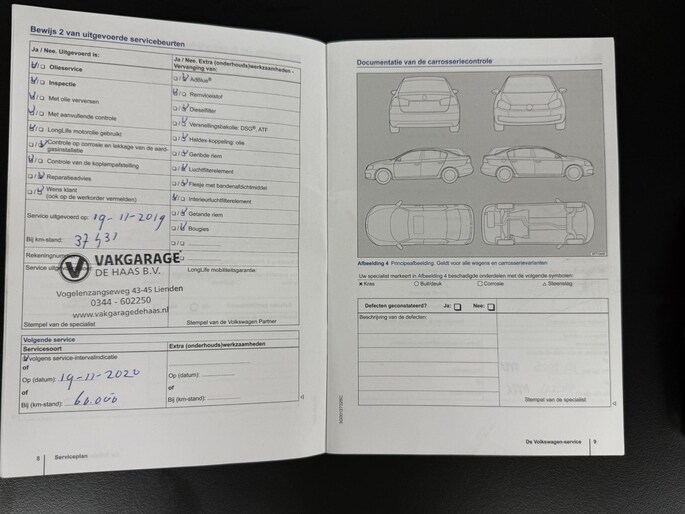 Bewijs 2 van uitgevoerde servicebeurten
Ja / Nee. Uitgevoerd is:
Olieservice
Inspectie
Met olie verversen
Met aanvullende controle
LongLife motorolie gebruikt
Controle op corrosie en lekkage van de aard-
gasinstallatie
Controle van de koplampafstelling
Reparatieadvies
Wens klant
(ook op de werkorder vermelden)
Service uitgevoerd op: 19-11-2019
Bij km-stand: 37431
Rekeningnummer
Service uitgevoerd door:
VAKGARAGE
DE HAAS B.V.
Vogelenzangseweg 43-45 Lienden
0344 - 602250
www.vakgaragedehaas.nl
Stempel van de specialist
Ja / Nee. Extra (onderhouds)werkzaamheden -
Vervanging van:
AdBlue®
Remvloeistof
Dieselfilter
Versnellingsbakolie: DSG®, ATF
Haldex-koppeling: olie
Geribde riem
Luchtfilterelement
Flesje met bandenafdichtmiddel
Interieurluchtfilterelement
Getande riem
Bougies
LongLife mobiliteitsgarantie:
Stempel van de Volkswagen Partner
Volgende service
Servicesoort
volgens service-intervalindicatie
of
Op (datum): 19-11-2020
of
Bij (km-stand): 60.000
Extra (onderhouds)werkzaamheden
Op (datum):
of
Bij (km-stand):
8 Serviceplan
Documentatie van de carrosseriecontrole
Afbeelding 4 Principeafbeelding. Geldt voor alle wagens en carrosserievarianten
Uw specialist markeert in Afbeelding 4 beschadigde onderdelen met de volgende symbolen:
× Kras ○ Buil/deuk □ Corrosie △ Steenslag
Defecten geconstateerd? Ja: Nee:
Beschrijving van de defecten:
Stempel van de specialist
De Volkswagen-service 9